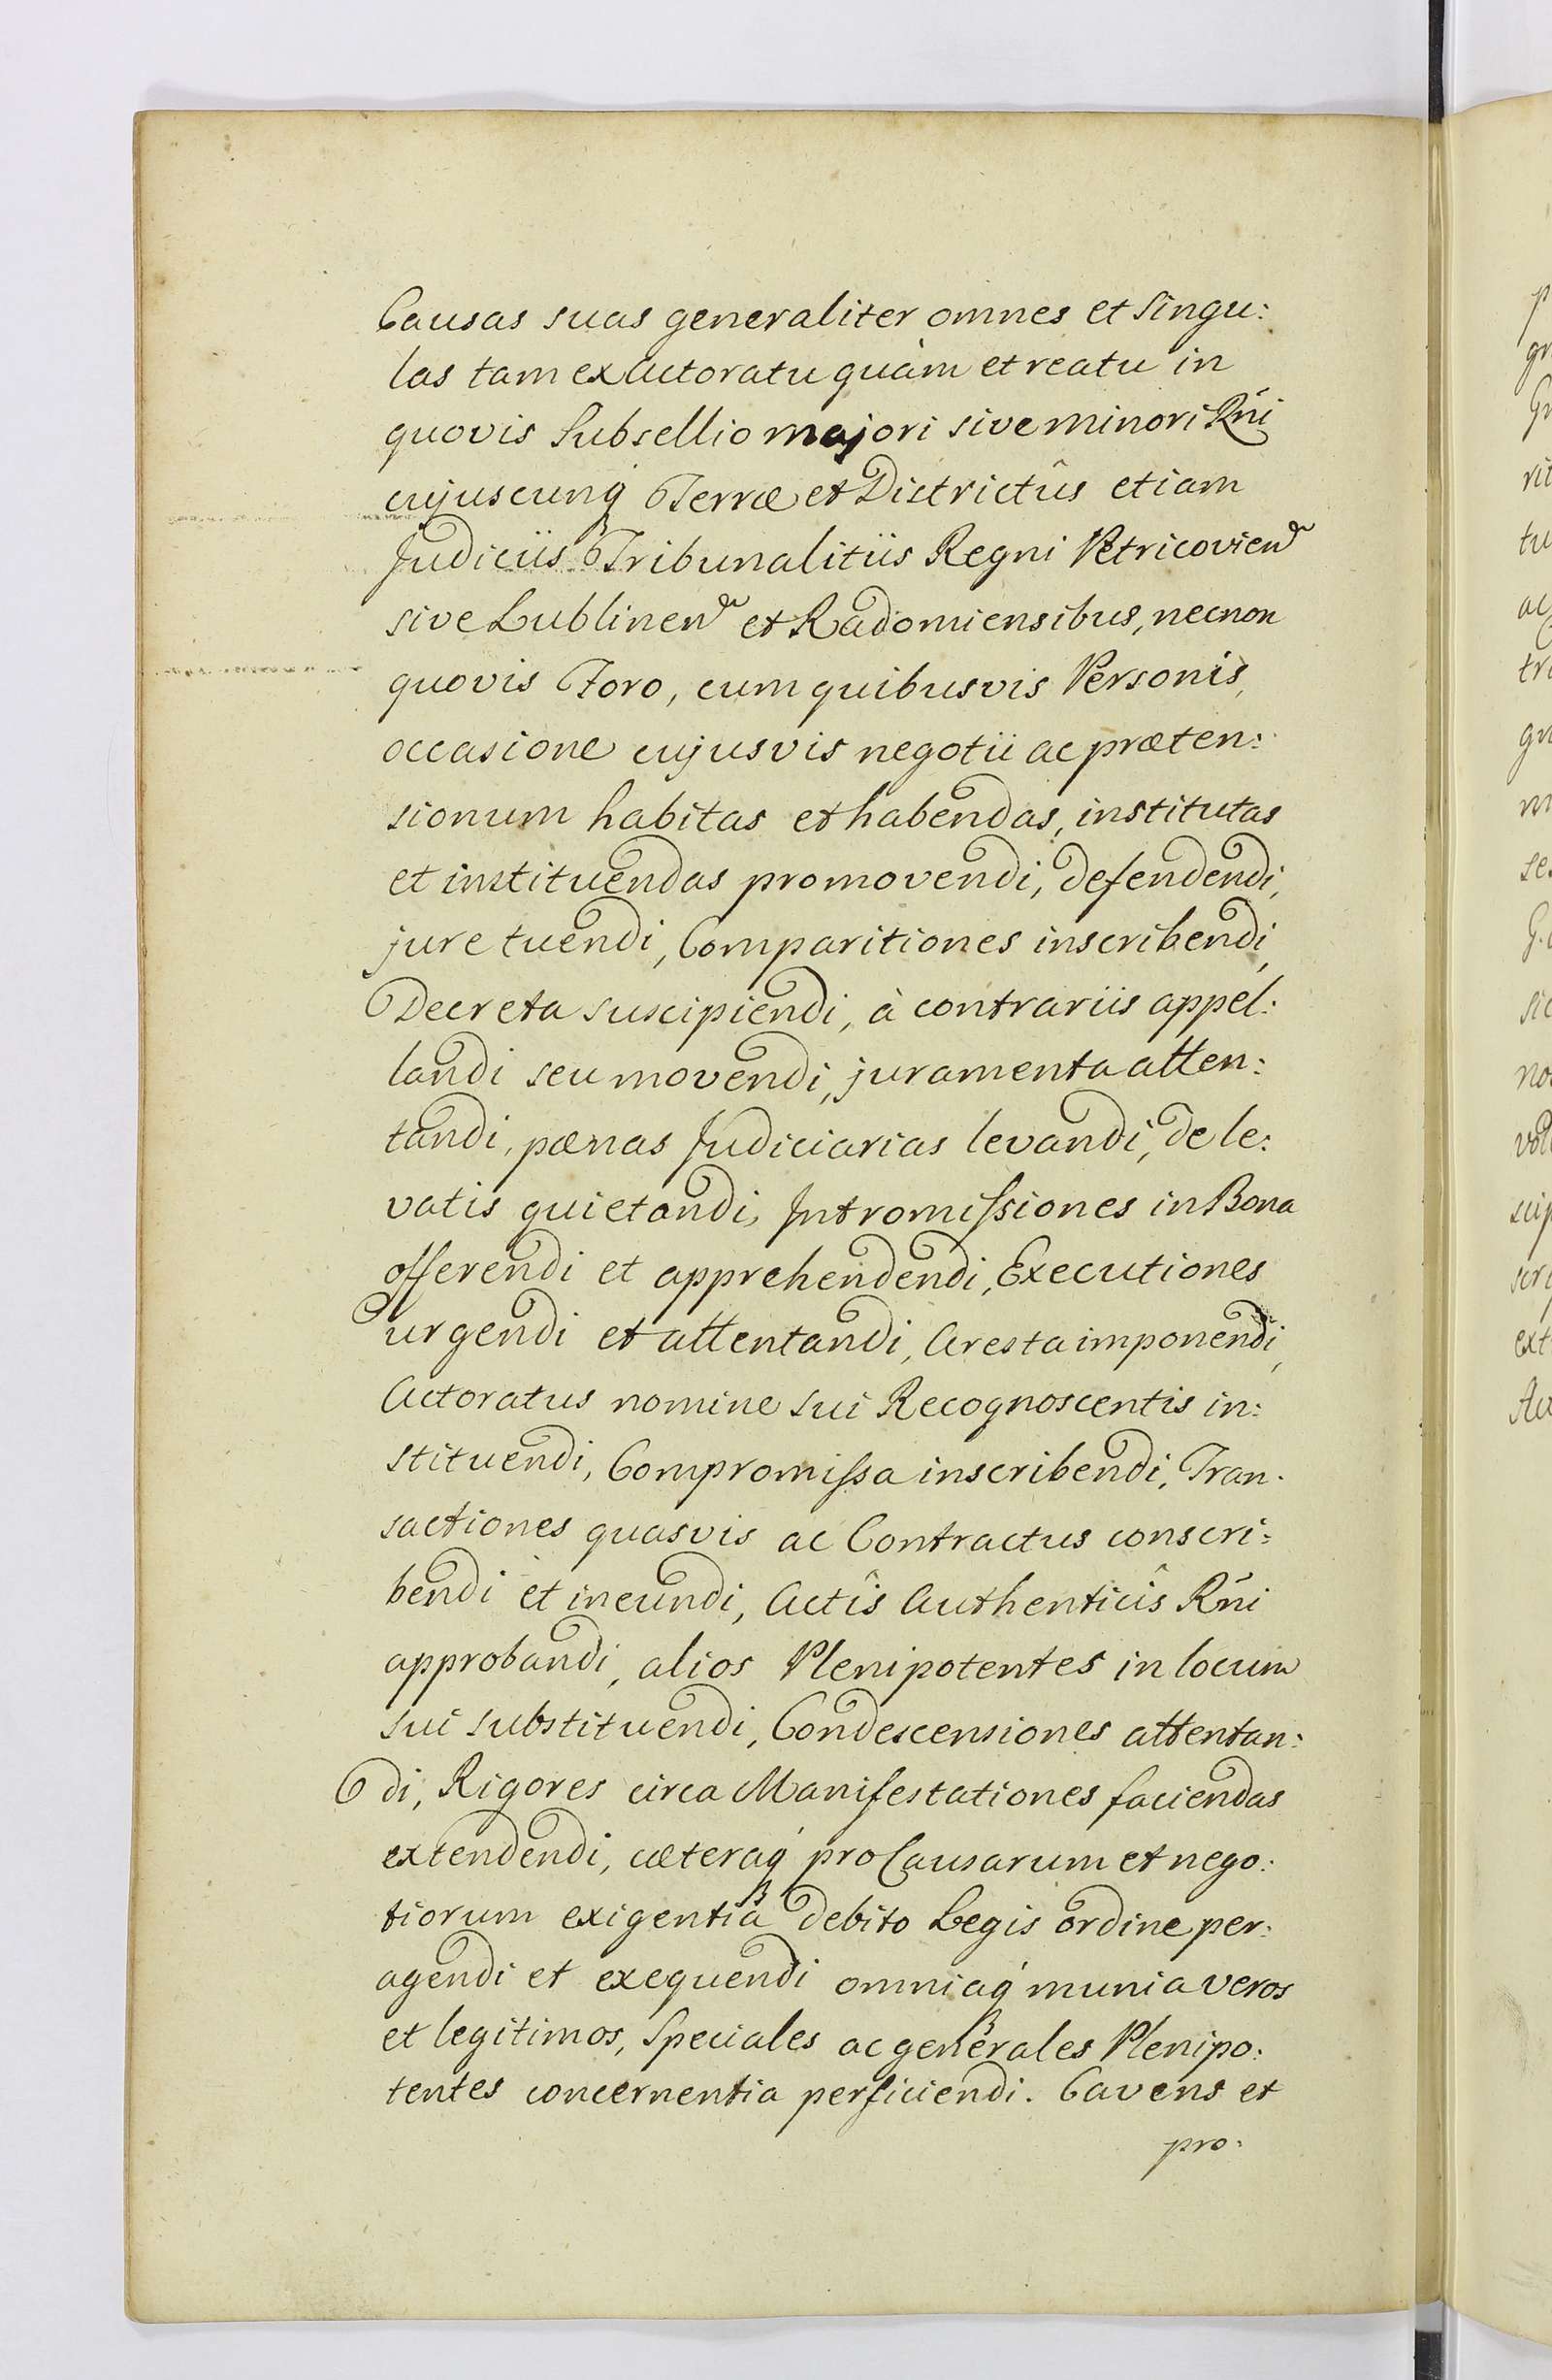 Causas suas generaliter omnes et singu:
las tam ex Actoratu quàm et reatu in
quovis Subsellio majori sive minori Rńi
cujuscunq́ Terræ et Districtûs etiam
Judiciis Tribunalitiis Regni Petricovien
sive Lublinen et Radomiensibus, necnon
quovis Foro, cum quibusvis Personis,
occasione cujusvis negotii ac præten:
sionum habitas et habendas, institutas
et instituendas promovendi, defendendi,
jure tuendi, Comparitiones inscribendi,
Decreta suscipiendi, à contrariis appel:
landi seu movendi, juramenta atten:
tandi, pœnas Judiciarias levandi, de le:
vatis quietandi, Intromissiones in Bona
offerendi et apprehendendi, Executiones
urgendi et attentandi, Aresta imponendi,
Actoratus nomine sui Recognoscentis in:
stituendi, Compromissa inscribendi, Tran:
sactiones quasvis ac Contractus conscri:
bendi et ineundi, Actîs Authenticîs Rńi
approbandi, alios Plenipotentes in locum
sui substituendi, Condescensiones attentan:
di, Rigores circa Manifestationes faciendas
extendendi, cæteraq́ pro Causarum et nego:
tiorum exigentiâ debito Legis ordine per:
agendi et exequendi omniaq́ munia veros
et legitimos, Speciales ac generales Plenipo:
tentes concernentia perficiendi. Cavens et
pro: